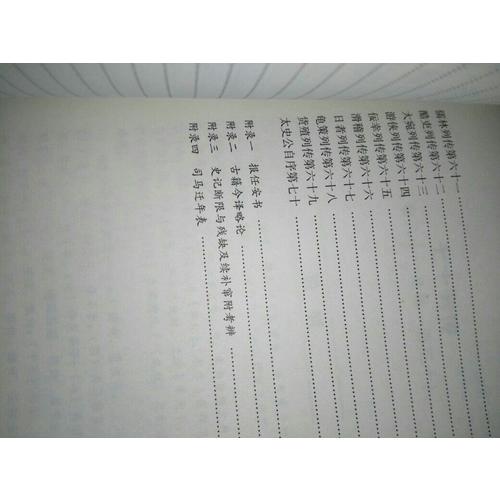 儒林列传第六十一
酷吏列传第六十二
大宛列传第六十三
游侠列传第六十四
佞幸列传第六十五
滑稽列传第六十六
日者列传第六十七
龟策列传第六十八
货殖列传第六十九
太史公自序第七十
附录一 报任安书
附录二 古籍今译略论
附录三 史记断限与残缺及续补窜附考辨
附录四 司马迁年表